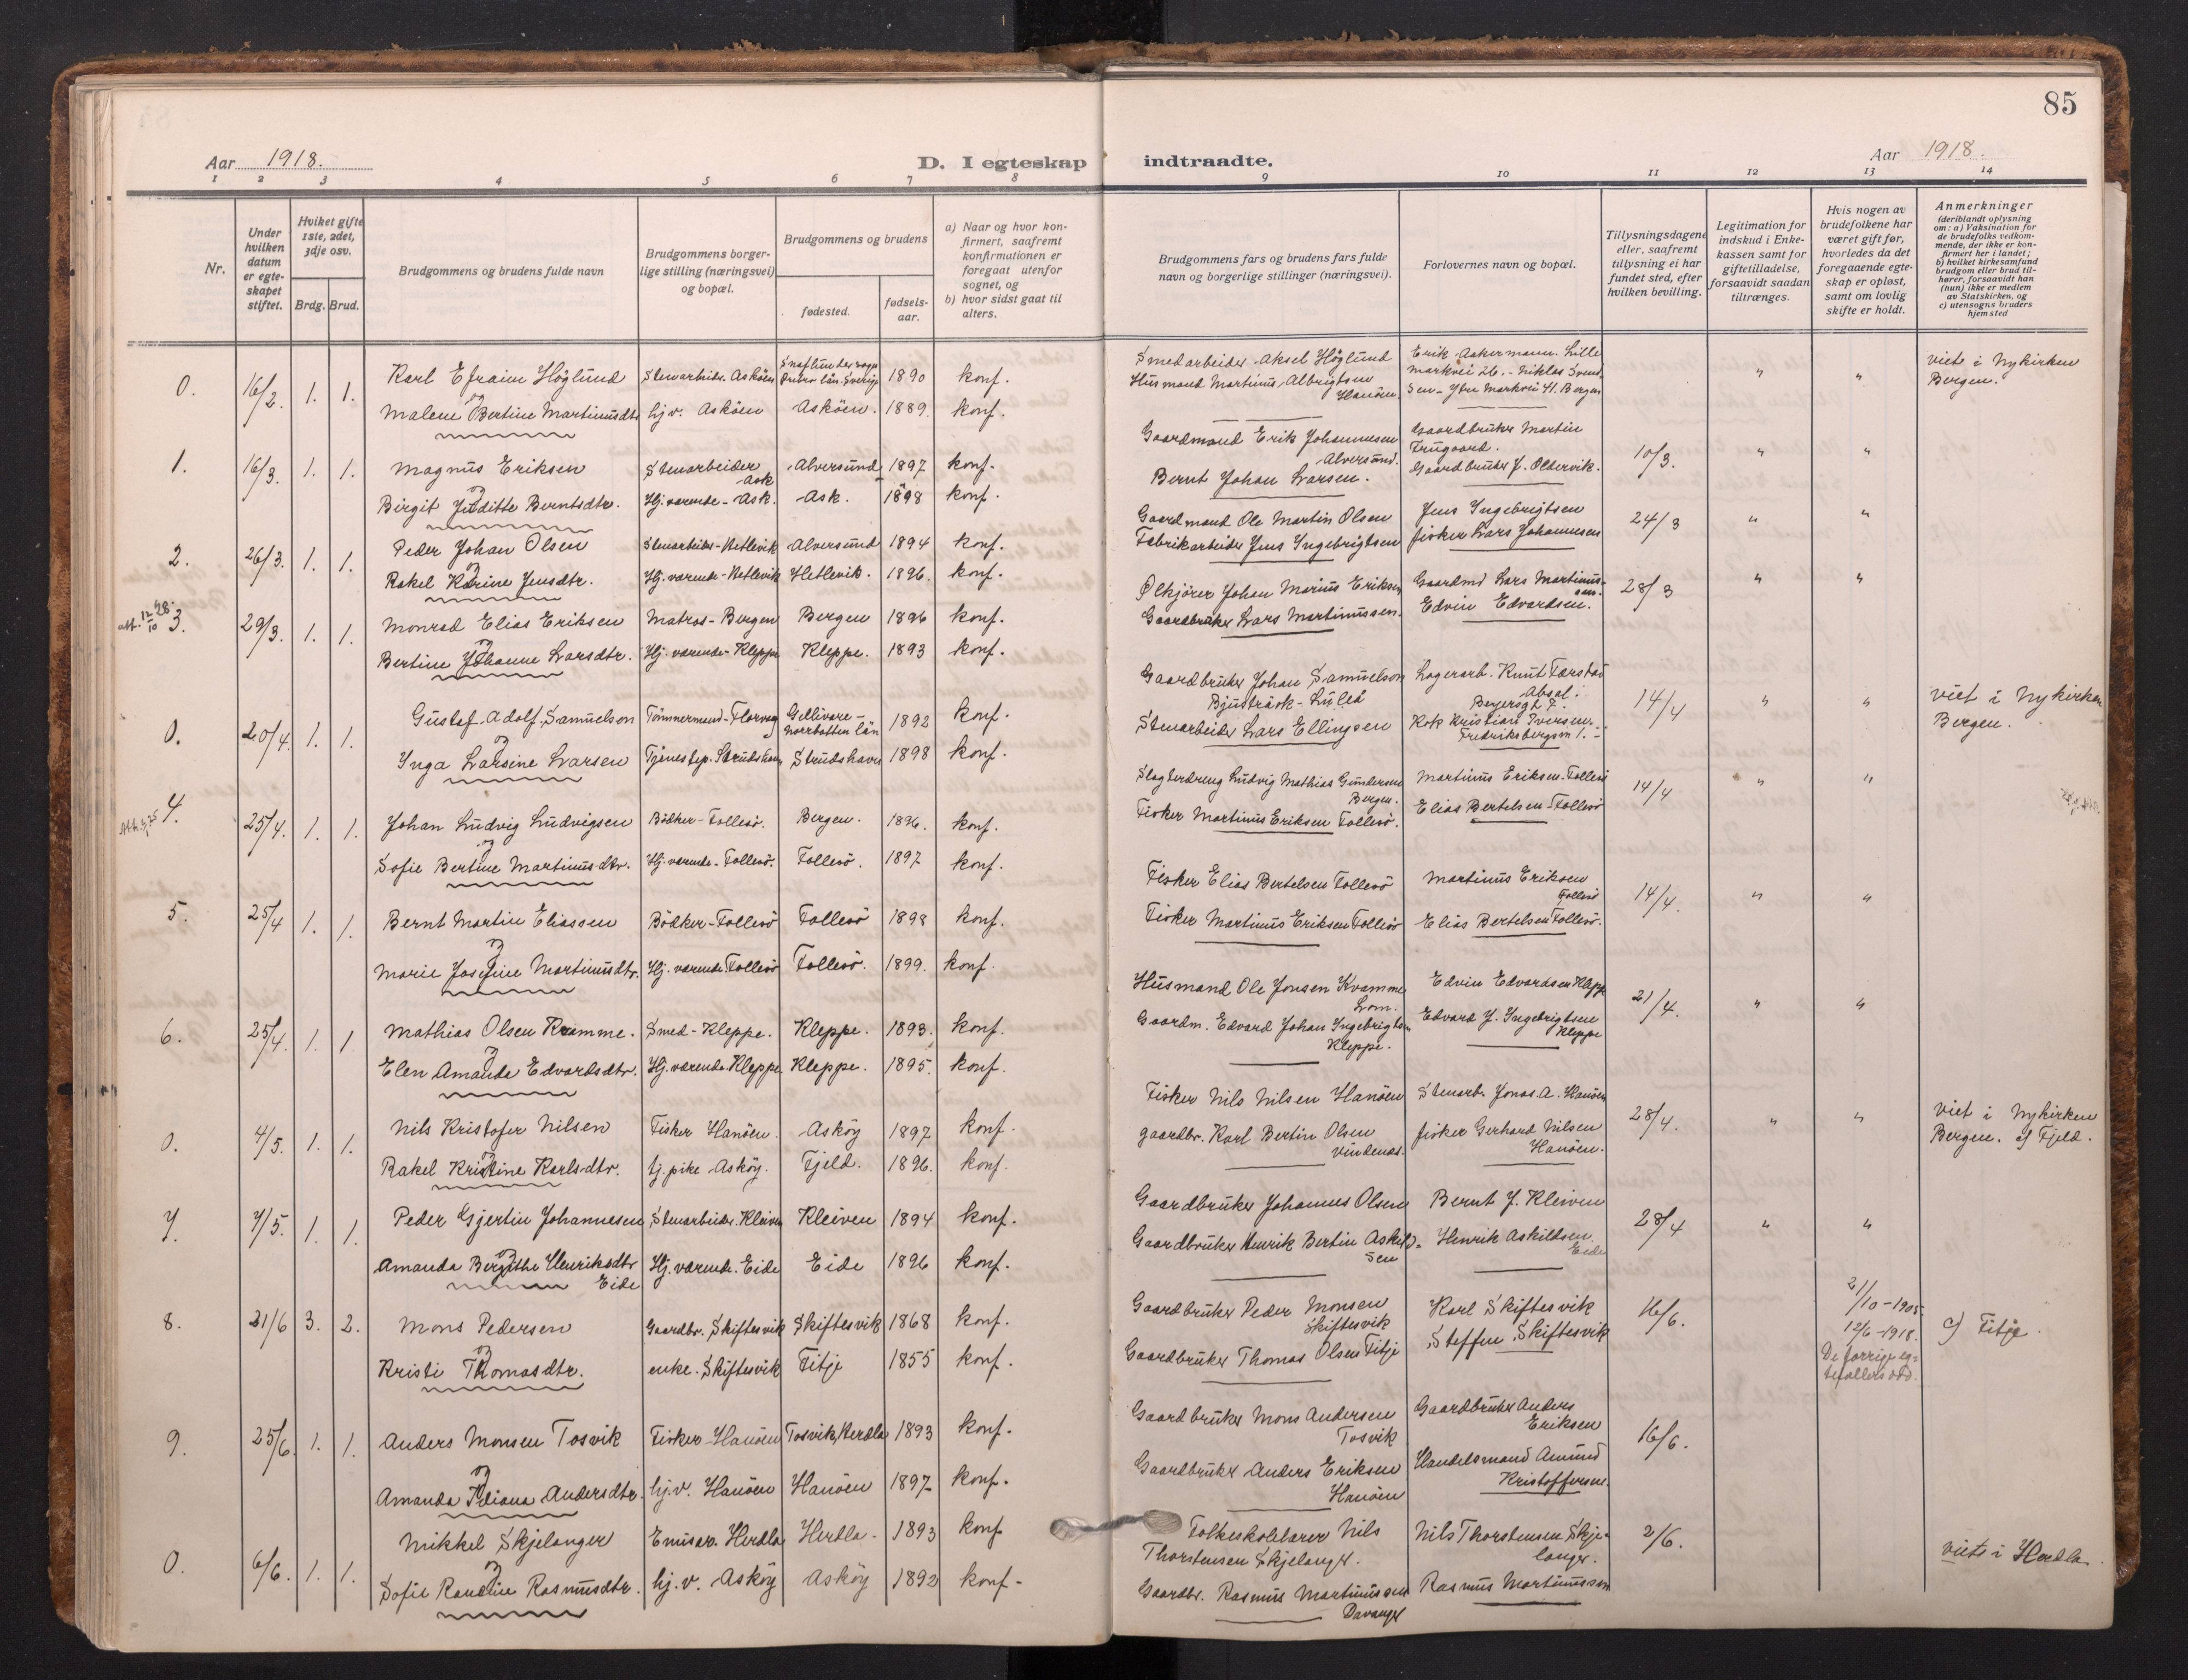 85
Aar 1918.
D. I egteskap indtraadte.
Aar 1918.
1 2 3 4 5 6 7 8 9 10 11 12 13 14
Nr.
Under hvilken datum er egteskapet stiftet.
Hvilket gifte 1ste, 2det, 3dje osv.
Brdg. Brud.
Brudgommens og brudens fulde navn
Brudgommens borgerlige stilling (næringsvei) og bopæl.
Brudgommens og brudens
fødested.
fødselsaar.
a) Naar og hvor konfirmert, saafremt konfirmationen er foregaat utenfor sognet, og
b) hvor sidst gaat til alters.
Brudgommens fars og brudens fars fulde navn og borgerlige stillinger (næringsvei).
Forlovernes navn og bopæl.
Tillysningsdagene eller, saafremt tillysning ei har fundet sted, efter hvilken bevilling.
Legitimation for indskud i Enkekassen samt for giftetilladelse, forsaavidt saadan tiltrænges.
Hvis nogen av brudefolkene har været gift før, hvorledes da det foregaaende egteskap er opløst, samt om lovlig skifte er holdt.
Anmerkninger
(deriblandt oplysning om: a) Vaksination for de brudefolks vedkommende, der ikke er konfirmert her i landet; b) hvilket kirkesamfund brudgom eller brud tilhører, forsaavidt han (hun) ikke er medlem av Statskirken, og c) utensogns bruders hjemsted
0. 16/2. 1. 1. Karl Efraim Höglund Stenarbeider. Asköen 1890 konf. Smedarbeider Aksel Höglund Erik Askermann. Lille markvei 26. - Niklas Svendsen - Ytre Markvei 41. Bergen " " viet i Nykirken Bergen.
og
Malene Bertine Martinusdtr hj.v. Asköen Asköen. 1889. konf. Husmand Martinus Albrigtsen Hanöen.
1. 16/3. 1. 1. Magnus Eriksen Stenarbeider Ask Alversund 1897 konf. Gaardmand Erik Johannesen Alversund. Gaardbruker Martin Frugaard. 10/3. " "
og
Birgit Juditte Berntsdtr. Hj.værende - Ask. Ask. 1898 konf. Bernt Johan Larsen. Gaardbruker J. Oltervik.
2. 26/3. 1. 1. Peder Johan Olsen Stenarbeider - Hetlevik Alversund 1894 konf. Gaardmand Ole Martin Olsen Jens Ingebrigtsen 24/3 " "
og
Rakel Karine Jensdtr. Hj. værende - Hetlevik Hetlevik. 1896. konf. Fabrikarbeider Jens Ingebrigtsen fisker Lars Johannesen
3. 29/3. 1. 1. Monrad Elias Eriksen Matros - Bergen Bergen 1896 konf. Ölkjörer Johan Marius Eriksen Gaardmd Lars Martinussen. 28/3 " "
og
Bertine Johanne Larsdtr. Hj. værende - Kleppe Kleppe. 1893 konf. Gaardbruker Lars Martinussen. Edvin Edvardsen.
0. 20/4. 1. 1. Gustaf Adolf Samuelson Tömmermand - Florvaag Gellivare - Norrbotten län 1892 konf. Gaardbruker Johan Samuelson Bjusträsk - Luleå Lagerarb. Knut Tærstad 14/4 " " viet i Nykirken Bergen.
og
Inga Larsine Larsen Tjenestep. Strudshavn Strudshavn 1898 konf. Stenarbeider Lars Ellingsen Kok Kristian Iversen. Fredriksbergsm 1.
4. 25/4. 1. 1. Johan Ludvig Ludvigsen Bödker - Follesö. Bergen. 1896. konf. Slagterdreng Ludvig Mathias Gundersen Bergen. Martinus Eriksen - Follesö 14/4 " "
og
Sofie Bertine Martinusdtr. Hj. værende - Follesö. Follesö. 1897 konf. Fisker Martinus Eriksen Follesö. Elias Bertelsen - Follesö
5. 25/4 1. 1. Bernt Martin Eliassen Bödker - Follesö Follesö 1898 konf. Fisker Elias Bertelsen Follesö Martinus Eriksen Follesö 14/4. " "
og
Marie Josefine Martinusdtr. Hj. værende Follesö Follesö. 1899. konf. Fisker Martinus Eriksen Follesö Elias Bertelsen Follesö.
6. 25/4. 1. 1 Mathias Olsen Kramme. Smed - Kleppe. Kleppe. 1893. konf. Husmand Ole Jonsen Kvamme Lom. Edvin Edvardsen Kleppe 21/4. " "
og
Elen Amanda Edvardsdtr. Hj. værende Kleppe Kleppe. 1895. konf. Gaardm. Edvard Johan Ingebrigtsen Kleppe. Edvard J. Ingebrigtsen Kleppe
0. 4/5. 1. 1. Nils Kristofer Nilsen Fisker Hanöen. Asköy 1897 konf. Fisker Nils Nilsen Hanöen Stenarb. Jonas A. Hanöen 28/4. " " viet i Nykirken Bergen. c) Fjeld.
og
Rakel Kristine Karlsdtr. tj. pike Asköy. Fjeld. 1896. konf. gaardbr. Karl Bertin Olsen Vindenæs. fisker Gerhard Nilsen Hanöen.
7. 7/5. 1. 1. Peder Gjertin Johannesen Stenarbeider. Kleiven Kleiven 1894 konf. Gaardbruker Johannes Olsen Bernt J. Kleiven 28/4 " "
og
Amanda Bergithe Henriksdtr Eide Hj. værende. Eide Eide 1896 konf. Gaardbruker Henrik Bertin Askildsen Henrik Askildsen. Eide
8. 21/6 3. 2. Mons Pedersen Gaardbr. Skiftesvik Skiftesvik 1868 konf. Gaardbruker Peder Monsen Skiftesvik Karl Skiftesvik 16/6. 21/10 - 1905 12/6 - 1918. De forrige egtefællers död. c) Fitje.
og
Kristi Thomasdtr. enke. Skiftesvik Fitje 1855 konf. Gaardbruker Thomas Olsen Fitje Steffen Skiftesvik
9. 25/6. 1. 1. Anders Monsen Tosvik Fisker - Hanöen Tosvik, Herdla 1893 konf. Gaardbruker Mons Andersen Tosvik Gaardbruker Anders Eriksen 16/6.
og
Amanda Andersdtr. hj.v. Hanöen Hanöen 1897 konf. Gaardbruker Anders Eriksen Hanöen Handelsmand Amund Kristoffersen.
0. 6/6. 1. 1. Mikkel Skjelanger Emisær. Herdla Herdla - 1893 konf Folkeskolelærer Nils Thorstensen Skjelanger. Nils Thorstensen Skjelanger. 2/6. viets i Herdla.
og
Sofie Rasmusdtr. hj.v. Asköy Asköy 1892 konf - Gaardbr. Rasmus Martinussen Davanger Rasmus Martinussen